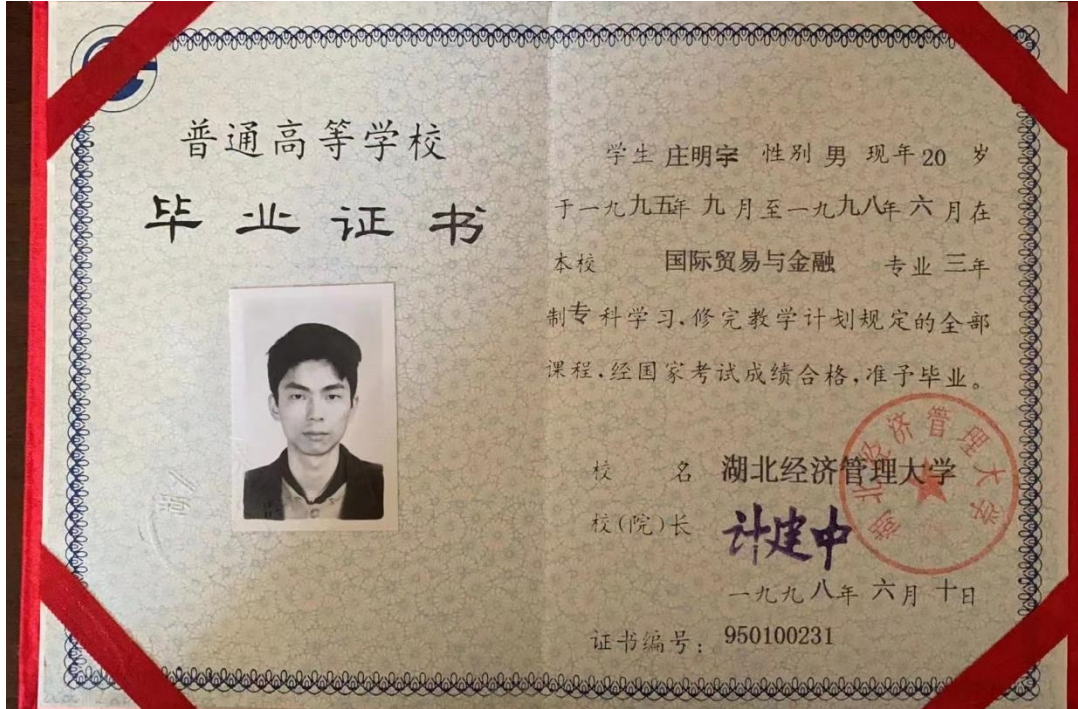 普通高等学校
毕业证书
学生 庄明宇 性别 男 现年 20 岁
于一九九五年 九 月至一九九八年 六 月在
本校 国际贸易与金融 专业 三年
制专科学习,修完教学计划规定的全部
课程,经国家考试成绩合格,准予毕业。
校 名 湖北经济管理大学
校(院)长 计建中
一九九八年 六月 十日
证书编号: 950100231
湖北经济管理大学